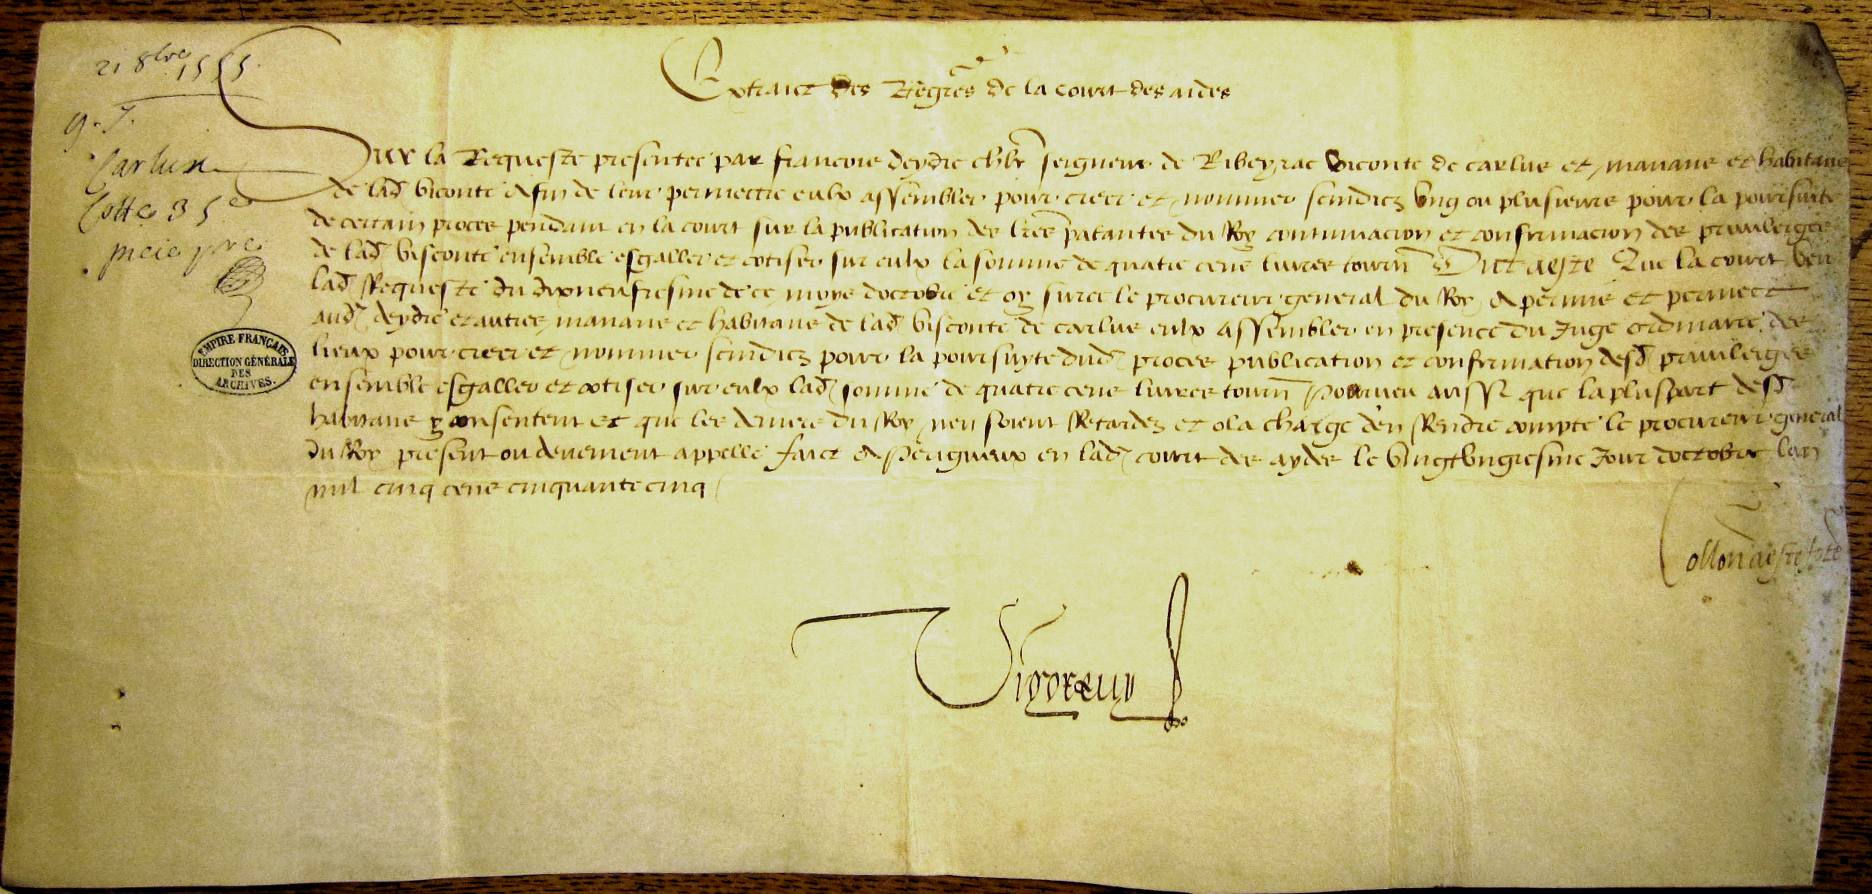 21 8bre 1555.
Extraict des Regres de la court des aides
Carlux
Cotte 35e
piece pre
Sur la Requeste presentee par francois deydie chlr seigneur de Ribeyrac viconte de carlus et manans et habitans
de lad viconte afin de leur permectre eulx assembler pour creer et nommer scindicz ung ou plusieurs pour la poursuite
de certain proces pendant en la court sur la publication des lres patantes du Roy continuacion et confirmacion des privilerges
de lad visconte ensemble esgaller et cotiser sur eulx la somme de quatre cens livres tourn Dict a este Que la court veu
lad Requeste du dixneufiesme de ce moys doctobre et oy sur ce le procureur general du Roy a permis et permect
aud deydie et autres manans et habitans de lad visconte de carlus eulx assembler en presence du Juge ordinaire des
lieux pour creer et nommer scindicz pour la poursuyte dud proces publication et confirmation desd privilerges
ensemble esgaller et cotiser sur eulx lad somme de quatre cens livres tourn Pourveu aussi que la pluspart desd
habitans y consentent et que les deniers du Roy nen soient Retardez et a la charge den Rendre compte le procureur general
du Roy present ou deuement appelle faict a Perigueux en lad court des aydes le vingtungiesme Jour doctobre lan
mil cinq cens cinquante cinq
EMPIRE FRANÇAIS
DIRECTION GÉNÉRALE
DES
ARCHIVES.
Collon a este
Vigoreux